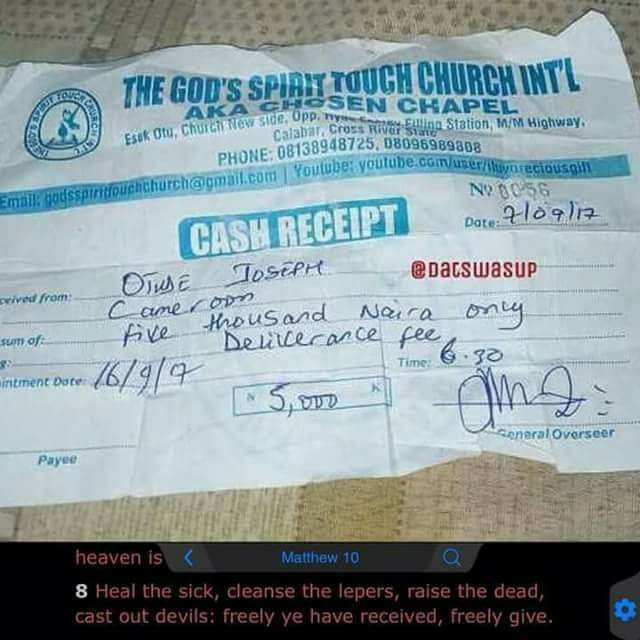 THE GOD'S SPIRIT TOUCH CHURCH INT'L
AKA CHOSEN CHAPEL
Esek Otu, Church New side, Opp. Filling Station, M/M Highway.
Calabar, Cross River State
PHONE: 08138948725, 08096989808
Email: godsspirittouchchurch@gmail.com | Youtube: youtube.com/user/
No 0056
CASH RECEIPT
Date: 7/09/17
@DatSwasup
ceived from: Otuse Joseph
Cameroon
sum of: five thousand Naira only
Deliverance fee
intment Date: 16/9/17
Time: 6.30
N 5,000 K
General Overseer
Payee
heaven is
Matthew 10
8 Heal the sick, cleanse the lepers, raise the dead,
cast out devils: freely ye have received, freely give.